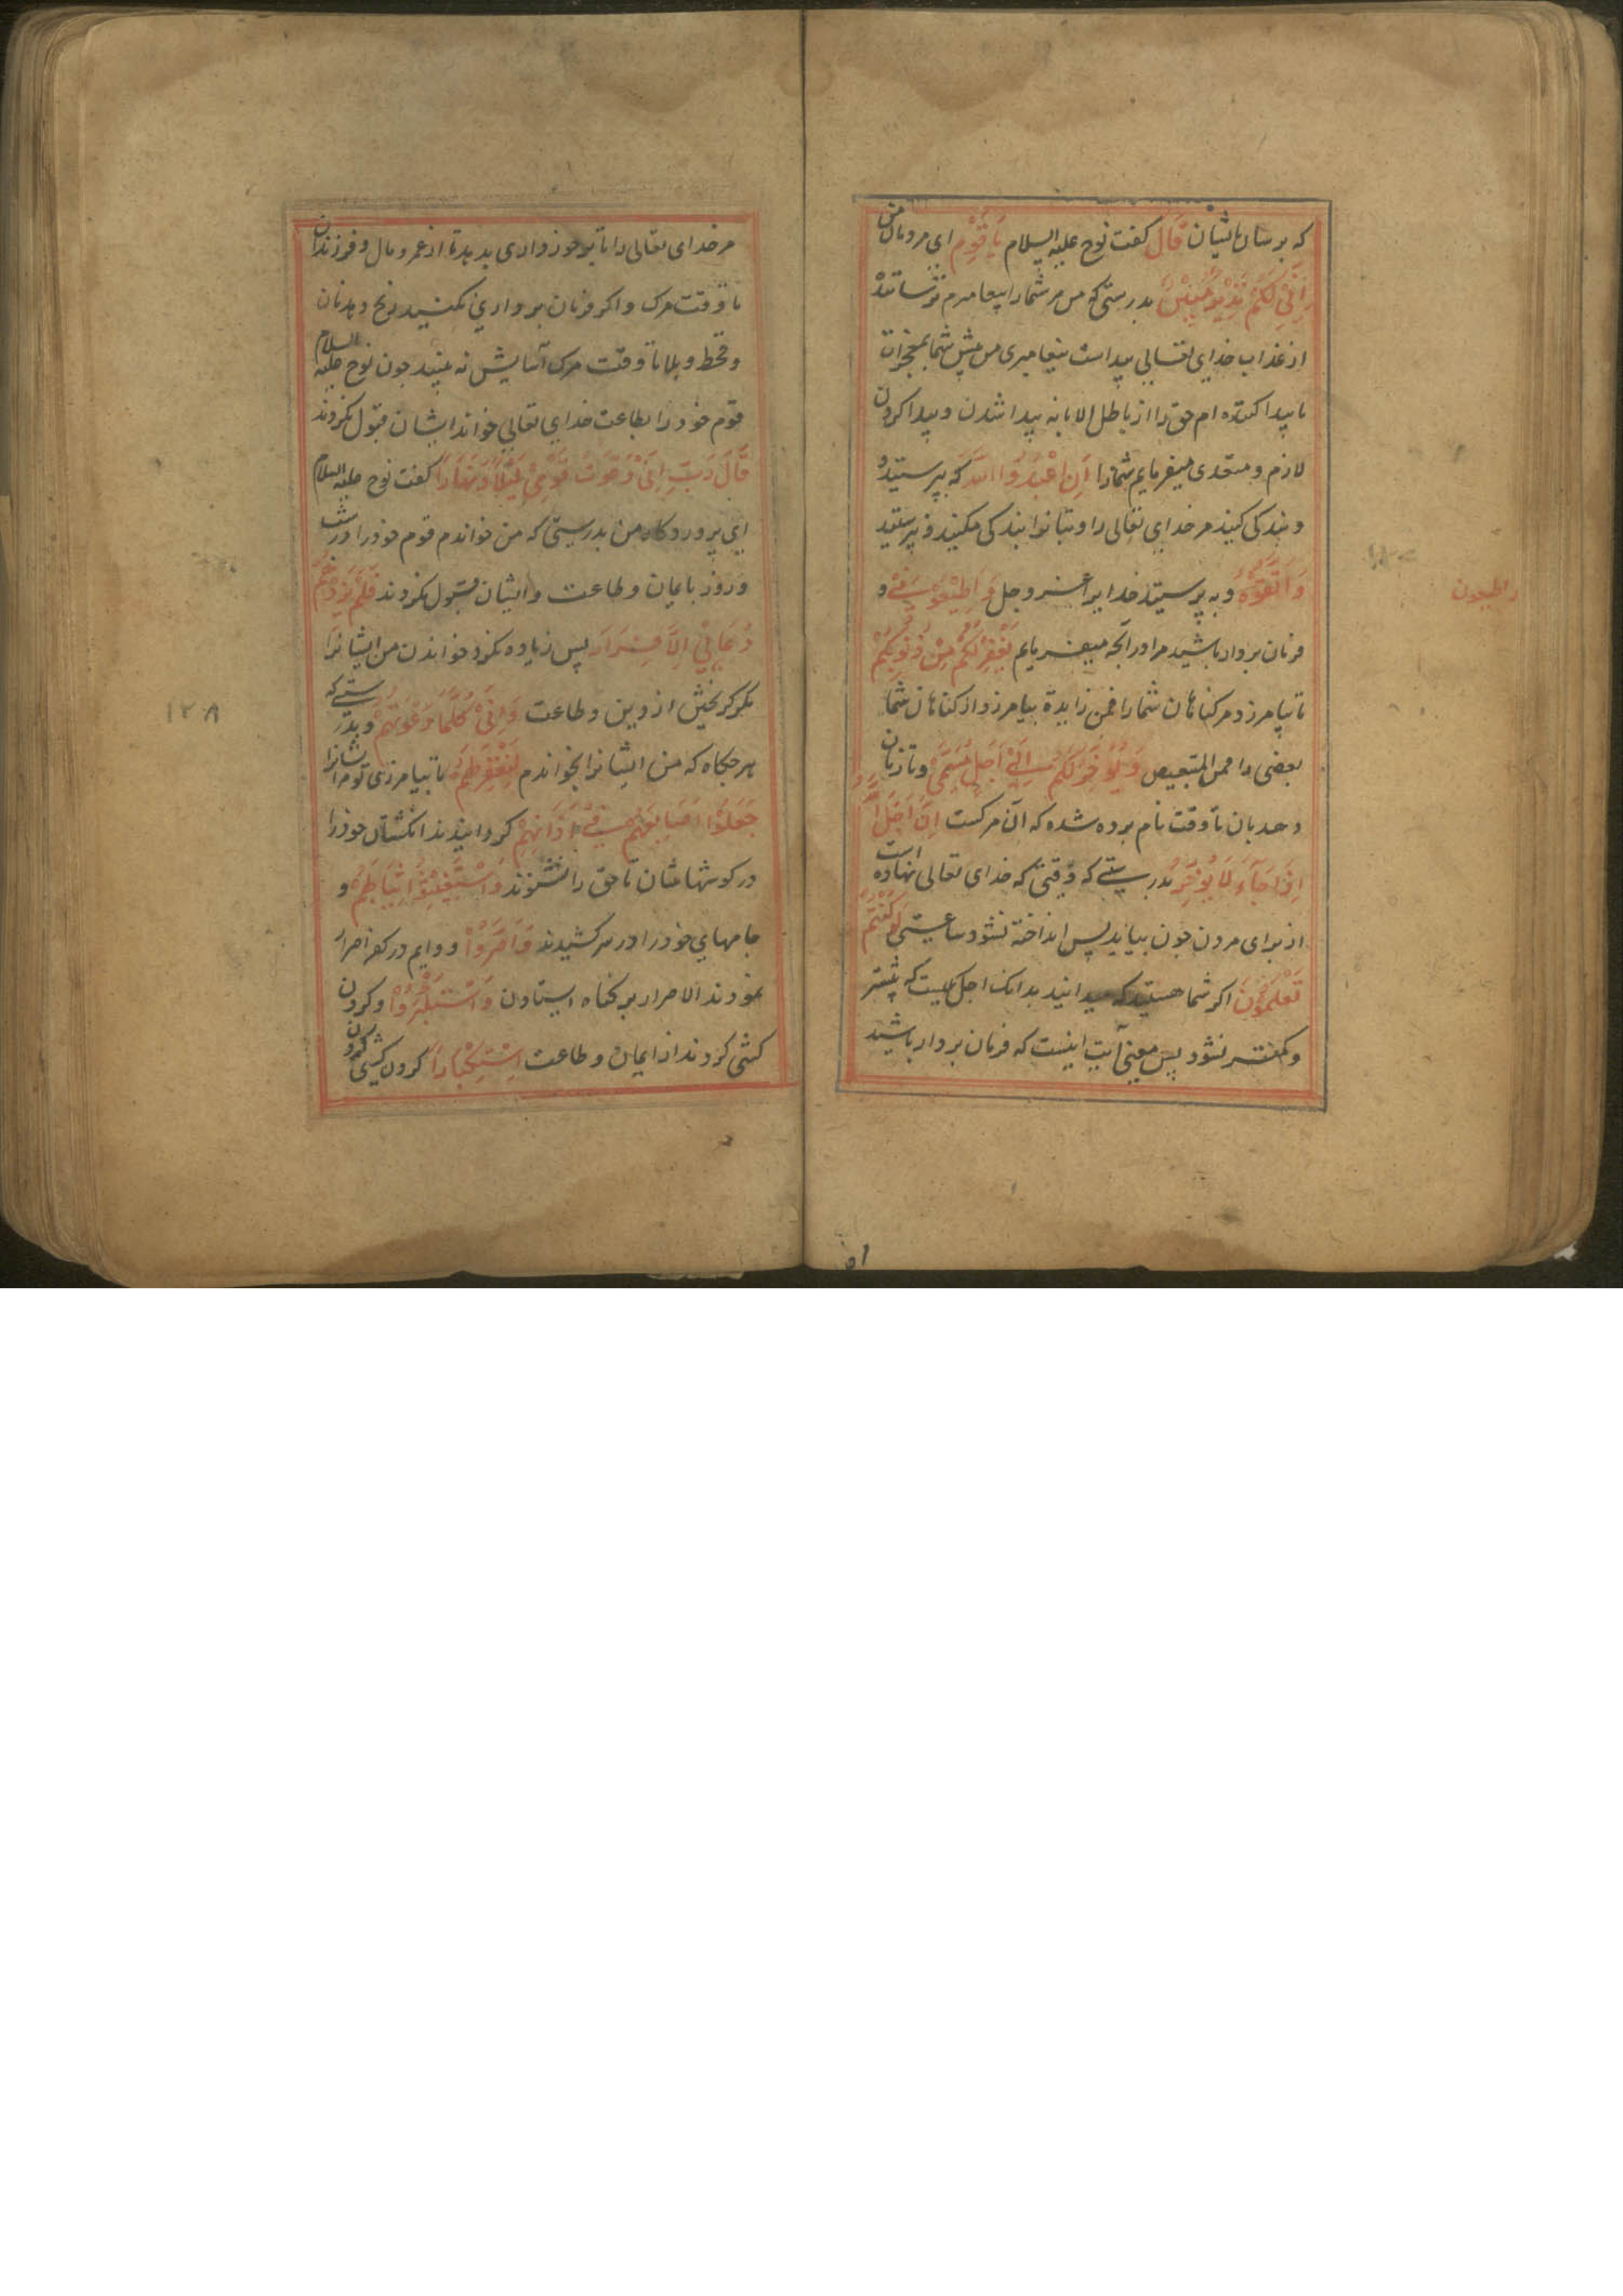 که بوسان ایشان قَالَ گفت نوح علیه السلام یَا قَوْمِ ای مردمان من
اِنِّیْ لَکُمْ نَذِیْرٌ مُبِیْنٌ بدرستی که من مر شما را پیغامبرم ترساننده
از عذاب خدای تعالی پیداست پیغامبری من پیش شما بمعجزات
یا پیدا کننده ام حق را از باطل الابانه پیدا شدن و پیدا کردن
لازم و متعدی میفرمایم شما را اَنِ اعْبُدُوا اللّٰهَ که بپرستید و
و بندکی کنید مر خدای تعالی را و بتانرا بندکی مکنید و نپرستید
وَ اتَّقُوْهُ و به پرستید خدایرا عز و جل وَ اَطِیْعُوْنِیْ و
اطیعون
فرمان بردار باشید مرا در آنچه میفرمایم یَغْفِرْ لَکُمْ مِنْ ذُنُوْبِکُمْ
تا بیامرزد مر کناهان شما را فمن زایدة بیامرزد از کناهان شما
بعضی را فمن للتبعیض وَ یُؤَخِّرَکُمْ اِلٰی اَجَلٍ مُسَمًّی و تا زمان
دهد بان تا وقت نام برده شده که آن مرکست اِنَّ اَجَلَ اللّٰهِ
اِذَا جَآءَ لَا یُؤَخَّرُ بدرستی که وقتی که خدای تعالی نهاده است
از برای مردن چون بیاید پس انداخته نشود ساعتی لَوْ کُنْتُمْ
تَعْلَمُوْنَ اکر شما هستید که میدانید بدانک اجل یکیست که بیشتر
و کمتر نشود پس معنی آیت اینست که فرمان بردار باشید
مر خدای تعالی را تا برخورداری بدهد تا از عمر و مال و فرزندان
تا وقت مرک و اکر فرمان برداری نکنید رنج دهدتان
و قحط و بلا تا وقت مرک آسایش نه بینید چون نوح علیه السلام
قوم خود را بطاعت خدای تعالی خواند ایشان قبول نکردند
قَالَ رَبِّ اِنِّیْ دَعَوْتُ قَوْمِیْ لَیْلًا وَ نَهَارًا گفت نوح علیه السلام
ای پروردکار من بدرستی که من خواندم قوم خود را در شب
و روز بایمان و طاعت و ایشان قبول نکردند فَلَمْ یَزِدْهُمْ
دُعَائِیْ اِلَّا فِرَارًا پس زیاده نکرد خواندن من ایشانرا
مکر کریختن از دین و طاعت وَ اِنِّیْ کُلَّمَا دَعَوْتُهُمْ و بدرستی که
۱۲۸
هر جکاه که من ایشانرا بخواندم لِتَغْفِرَ لَهُمْ تا بیامرزی تو مر ایشانرا
جَعَلُوْا اَصَابِعَهُمْ فِیْ اٰذَانِهِمْ کردانیدند انکشتان خود را
در کوشهاشان تا حق را نشنوند وَ اسْتَغْشَوْا ثِیَابَهُمْ و
جامهای خود را در سر کشیدند وَ اَصَرُّوْا و دایم در کفر اصرار
نمودند الاصرار بر کناه ایستادن وَ اسْتَکْبَرُوْا و کردن
کشی کردند از ایمان و طاعت اِسْتِکْبَارًا کردن کشی کردن